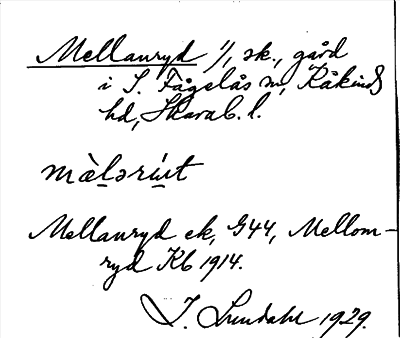 Mellanryd 1/1 sk., gård
i S. Fågelås sn, Kåkinds
hd, Skarab. l.
mæ̀lərùt
Mellanryd ek, G44, Mellom-
ryd Kb 1914.
I. Lundahl 1929.